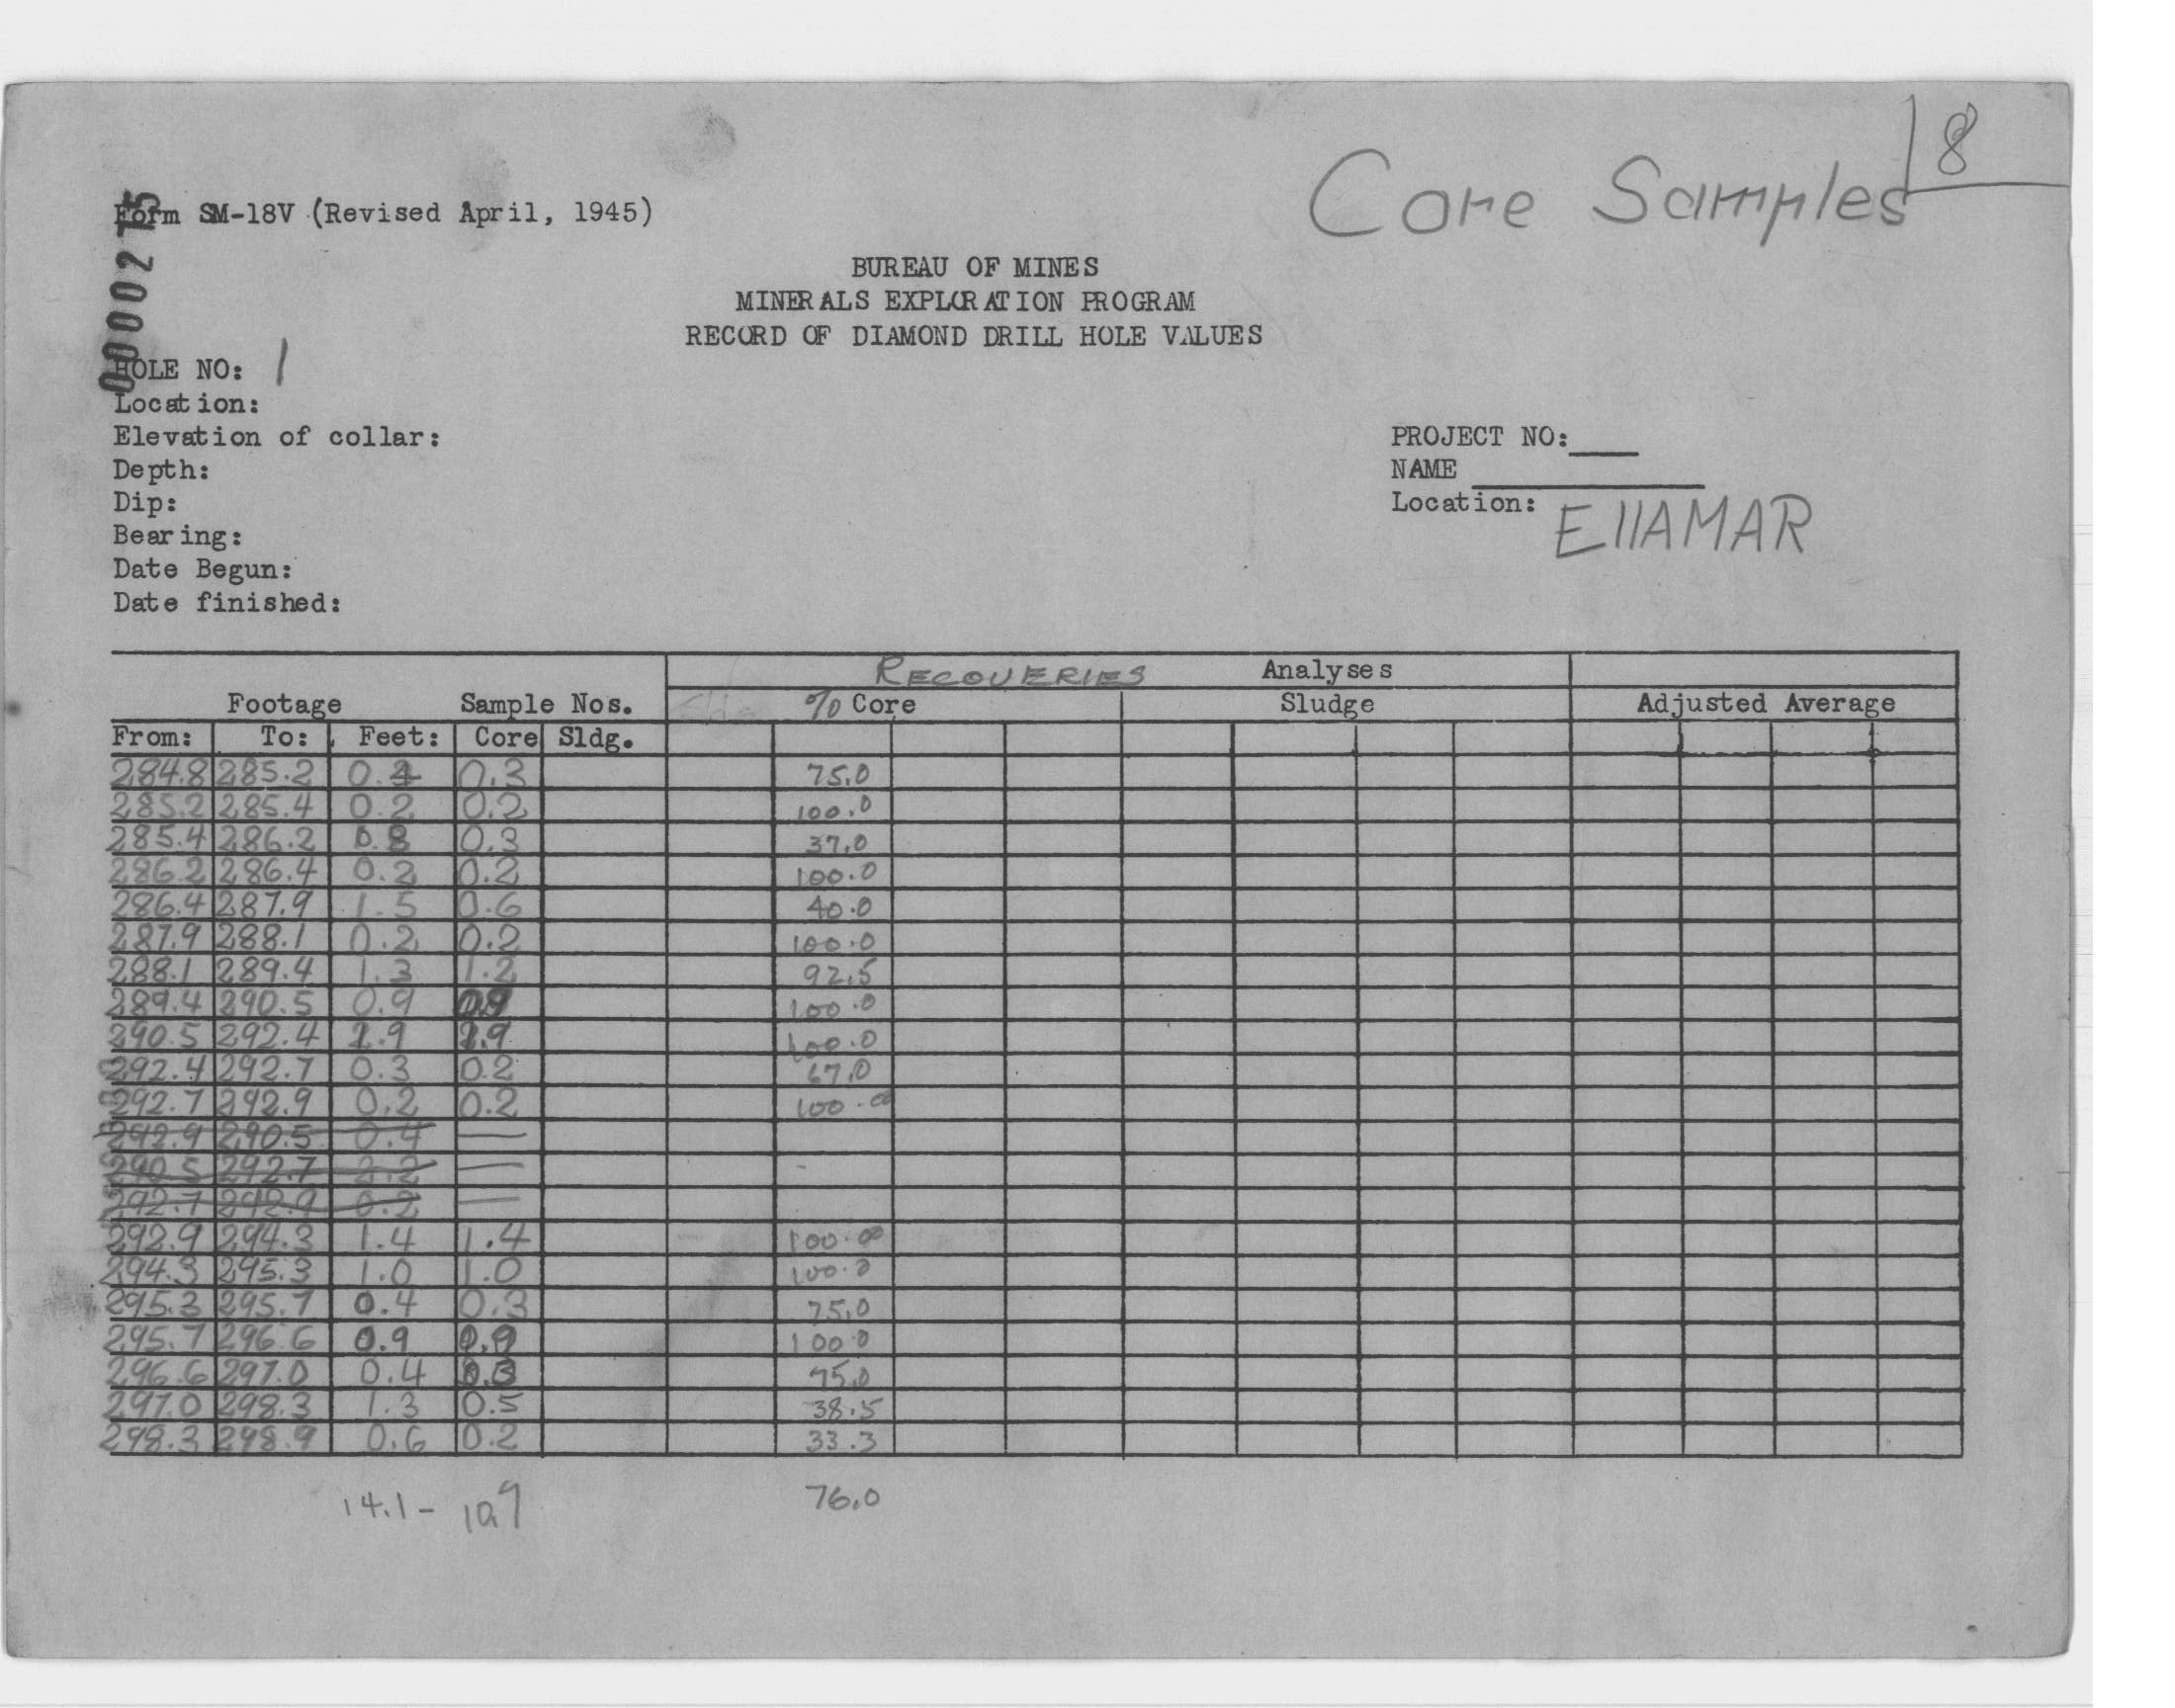 8
Core Samples
Form SM-18V (Revised April, 1945)
0000275
BUREAU OF MINES
MINERALS EXPLORATION PROGRAM
RECORD OF DIAMOND DRILL HOLE VALUES
HOLE NO: 1
Location:
Elevation of collar:
Depth:
Dip:
Bearing:
Date Begun:
Date finished:
PROJECT NO:
NAME
Location: EllAMAR
RECOVERIES Analyses
Footage Sample Nos. % Core Sludge Adjusted Average
From: To: Feet: Core Sldg.
284.8 285.2 0.4 0.3 75.0
285.2 285.4 0.2 0.2 100.0
285.4 286.2 0.8 0.3 37.0
286.2 286.4 0.2 0.2 100.0
286.4 287.9 1.5 0.6 40.0
287.9 288.1 0.2 0.2 100.0
288.1 289.4 1.3 1.2 92.5
289.4 290.5 0.9 0.9 100.0
290.5 292.4 1.9 1.9 100.0
292.4 292.7 0.3 0.2 67.0
292.7 292.9 0.2 0.2 100.00
292.9 290.5 0.4 —
290.5 292.7 2.2 —
292.7 292.9 0.2 —
292.9 294.3 1.4 1.4 100.00
294.3 295.3 1.0 1.0 100.0
295.3 295.7 0.4 0.3 75.0
295.7 296.6 0.9 0.9 100.0
296.6 297.0 0.4 0.3 75.0
297.0 298.3 1.3 0.5 38.5
298.3 298.9 0.6 0.2 33.3
14.1 - 10.9 76.0